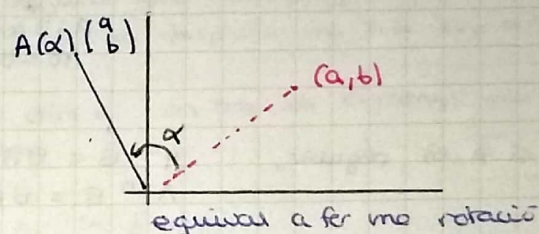 A(α) (a b)
(a, b)
α
equival a fer una rotació